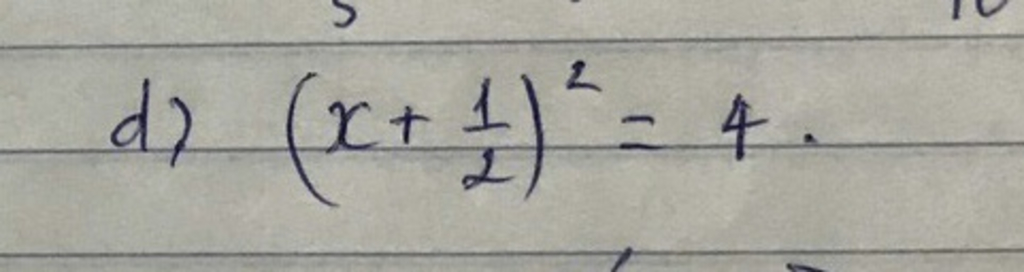 d) (x + 1/2)² = 4.